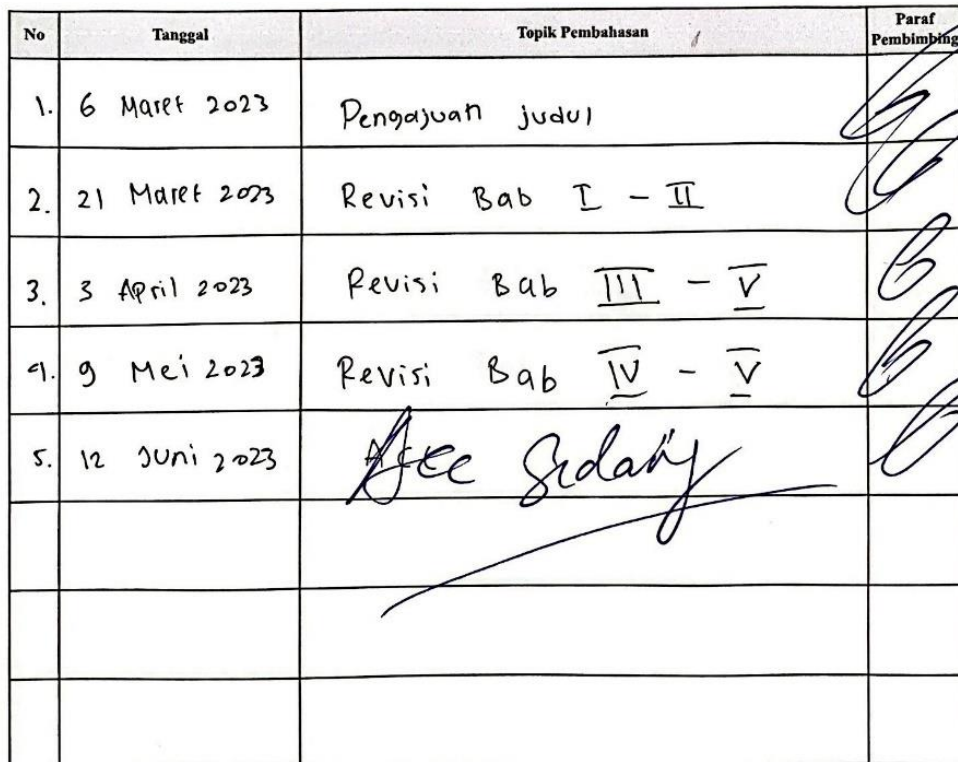 No Tanggal Topik Pembahasan Paraf
Pembimbing
1. 6 Maret 2023 Pengajuan judul
2. 21 Maret 2023 Revisi Bab I - II
3. 3 April 2023 Revisi Bab III - V
4. 9 Mei 2023 Revisi Bab IV - V
5. 12 Juni 2023 Acc Sidang